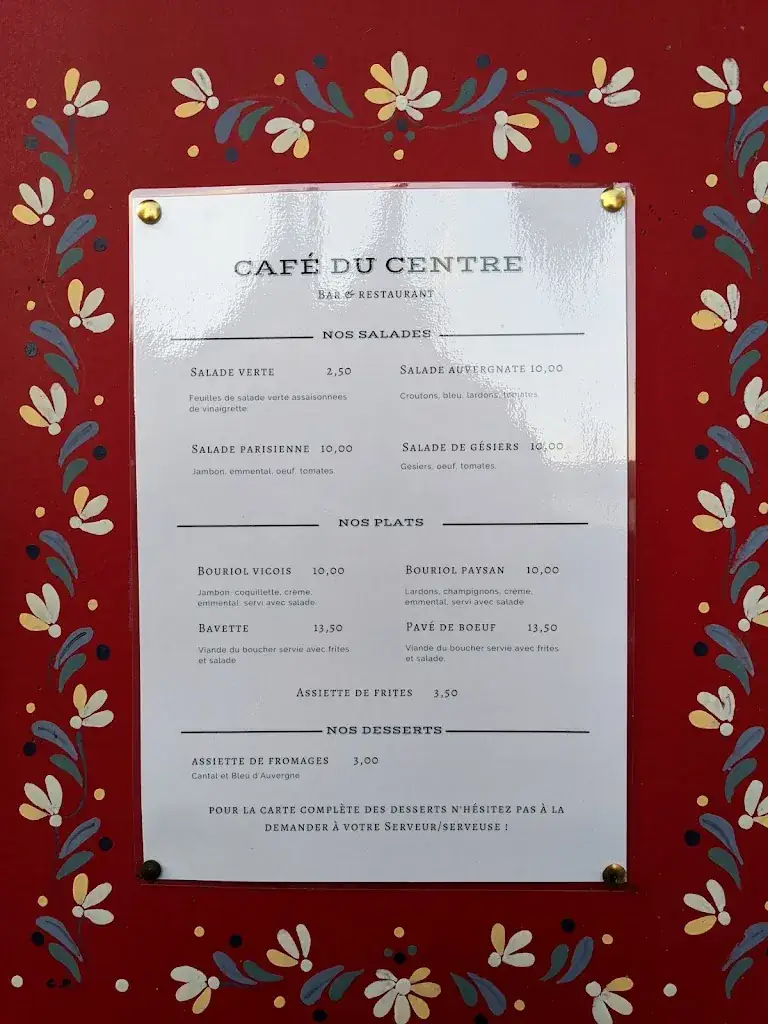 CAFÉ DU CENTRE
BAR & RESTAURANT
NOS SALADES
SALADE VERTE 2,50
Feuilles de salade verte assaisonnées
de vinaigrette.
SALADE AUVERGNATE 10,00
Croutons, bleu, lardons, tomates.
SALADE PARISIENNE 10,00
Jambon, emmental, oeuf, tomates.
SALADE DE GÉSIERS 10,00
Gésiers, oeuf, tomates.
NOS PLATS
BOURIOL VICOIS 10,00
Jambon, coquillette, crème,
emmental, servi avec salade.
BOURIOL PAYSAN 10,00
Lardons, champignons, crème,
emmental, servi avec salade
BAVETTE 13,50
Viande du boucher servie avec frites
et salade
PAVÉ DE BOEUF 13,50
Viande du boucher servie avec frites
et salade.
ASSIETTE DE FRITES 3,50
NOS DESSERTS
ASSIETTE DE FROMAGES 3,00
Cantal et Bleu d'Auvergne
POUR LA CARTE COMPLÈTE DES DESSERTS N'HÉSITEZ PAS À LA
DEMANDER À VOTRE SERVEUR/SERVEUSE !